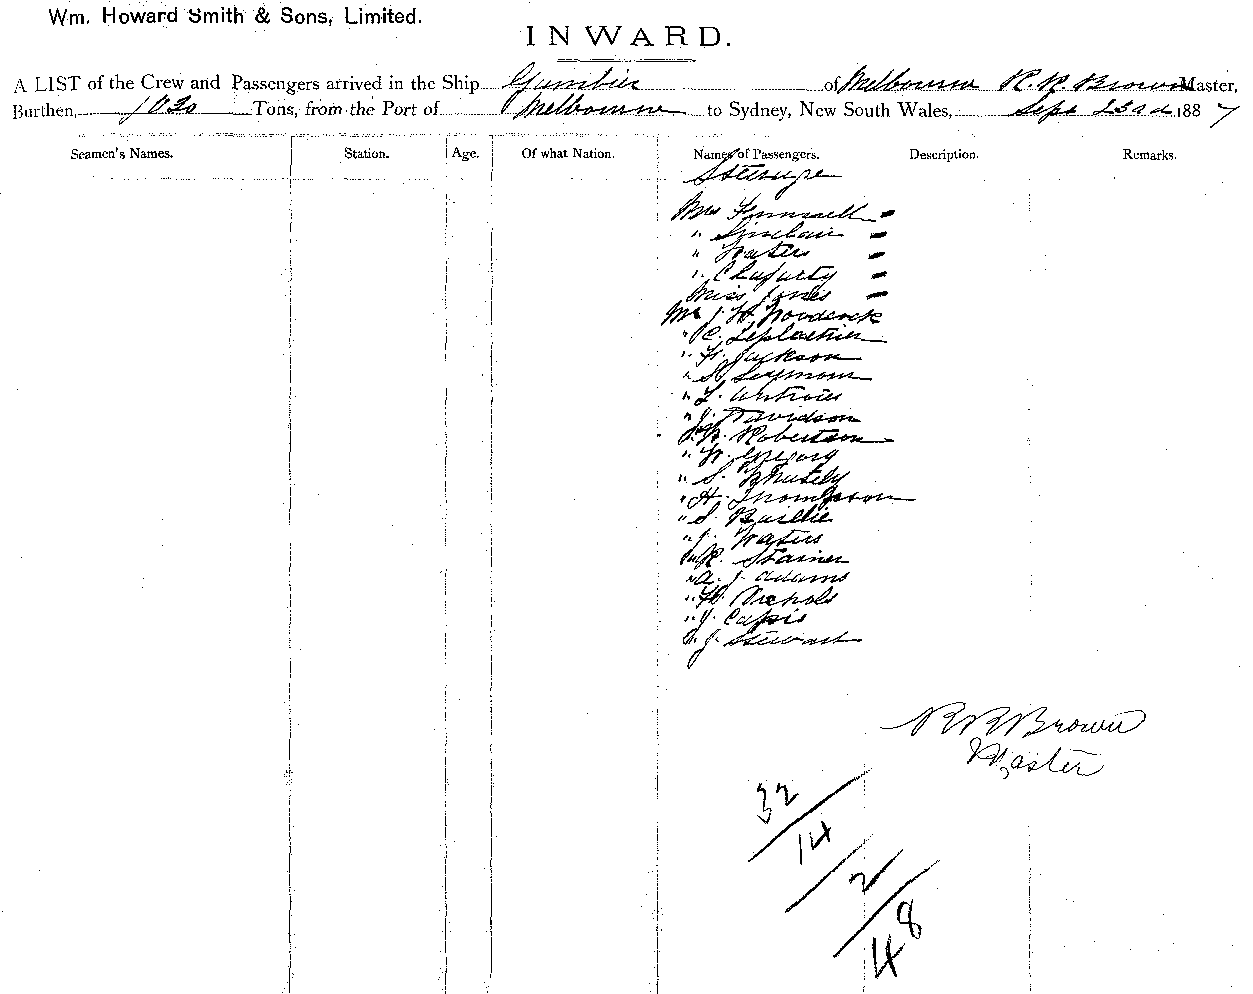 Wm. Howard Smith & Sons, Limited.
INWARD.
A LIST of the Crew and Passengers arrived in the Ship Gambier of Melbourne R. R. Brown Master,
Burthen, 1020 Tons, from the Port of Melbourne to Sydney, New South Wales, Sept 23rd 1887
Seamen's Names. Station. Age. Of what Nation. Names of Passengers. Description. Remarks.
Steerage
Mrs
" Sinclair
" Waters
"
Miss Jones
Mr J. W.
" C.
" Jackson
" Seymour
" L.
" J. Davidson
Robertson
"
" S.
" H. Thompson
" S. Baillie
" J. Waters
" R. Stainer
" A. J. Adams
" Nichols
" J.
" J. Stewart
R R Brown
Master
32
14
2
48